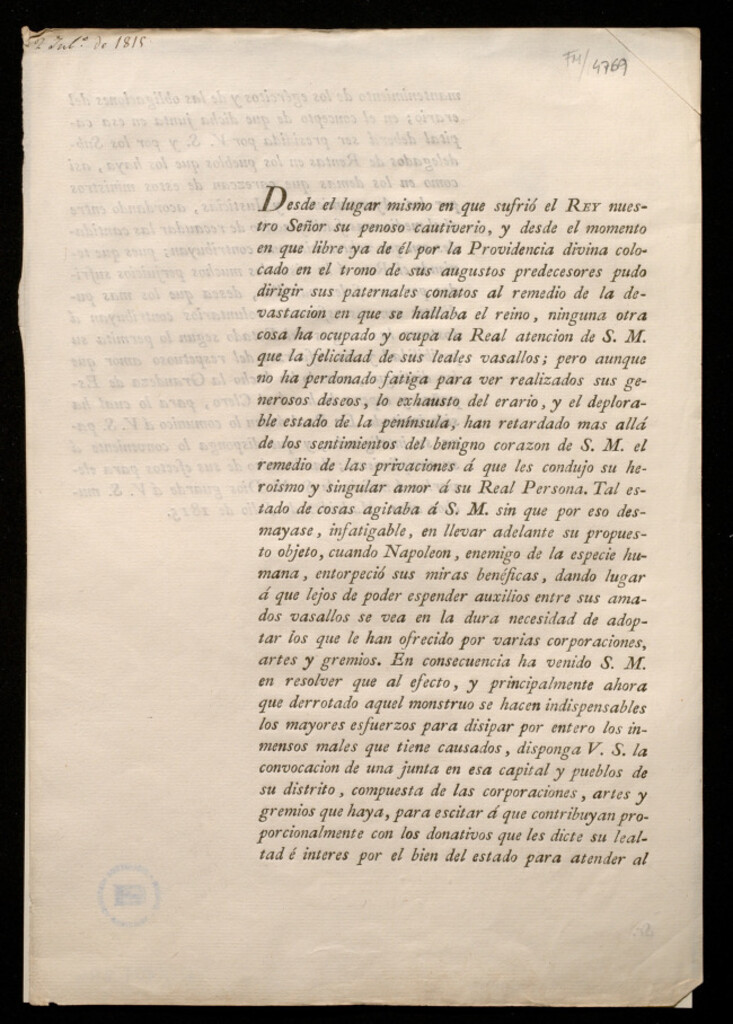 2 Jul.º de 1815
FM/4769
Desde el lugar mismo en que sufrió el REY nues-
tro Señor su penoso cautiverio, y desde el momento
en que libre ya de él por la Providencia divina colo-
cado en el trono de sus augustos predecesores pudo
dirigir sus paternales conatos al remedio de la de-
vastacion en que se hallaba el reino, ninguna otra
cosa ha ocupado y ocupa la Real atencion de S. M.
que la felicidad de sus leales vasallos; pero aunque
no ha perdonado fatiga para ver realizados sus ge-
nerosos deseos, lo exhausto del erario, y el deplora-
ble estado de la península, han retardado mas allá
de los sentimientos del benigno corazon de S. M. el
remedio de las privaciones á que les condujo su he-
roismo y singular amor á su Real Persona. Tal es-
tado de cosas agitaba á S. M. sin que por eso des-
mayase, infatigable, en llevar adelante su propues-
to objeto, cuando Napoleon, enemigo de la especie hu-
mana, entorpeció sus miras benéficas, dando lugar
á que lejos de poder espender auxilios entre sus ama-
dos vasallos se vea en la dura necesidad de adop-
tar los que le han ofrecido por varias corporaciones,
artes y gremios. En consecuencia ha venido S. M.
en resolver que al efecto, y principalmente ahora
que derrotado aquel monstruo se hacen indispensables
los mayores esfuerzos para disipar por entero los in-
mensos males que tiene causados, disponga V. S. la
convocacion de una junta en esa capital y pueblos de
su distrito, compuesta de las corporaciones, artes y
gremios que haya, para escitar á que contribuyan pro-
porcionalmente con los donativos que les dicte su leal-
tad é interes por el bien del estado para atender al